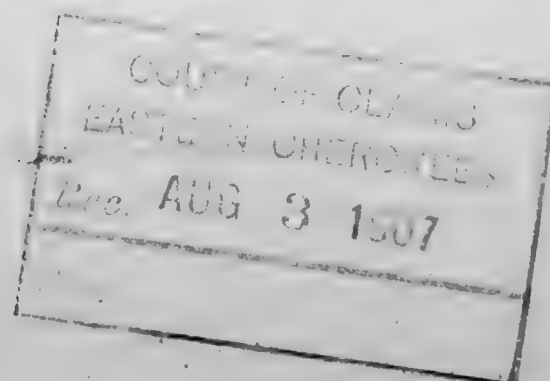 COURT OF CLAIMS
EASTERN CHEROKEES
Rec. AUG 3 1907